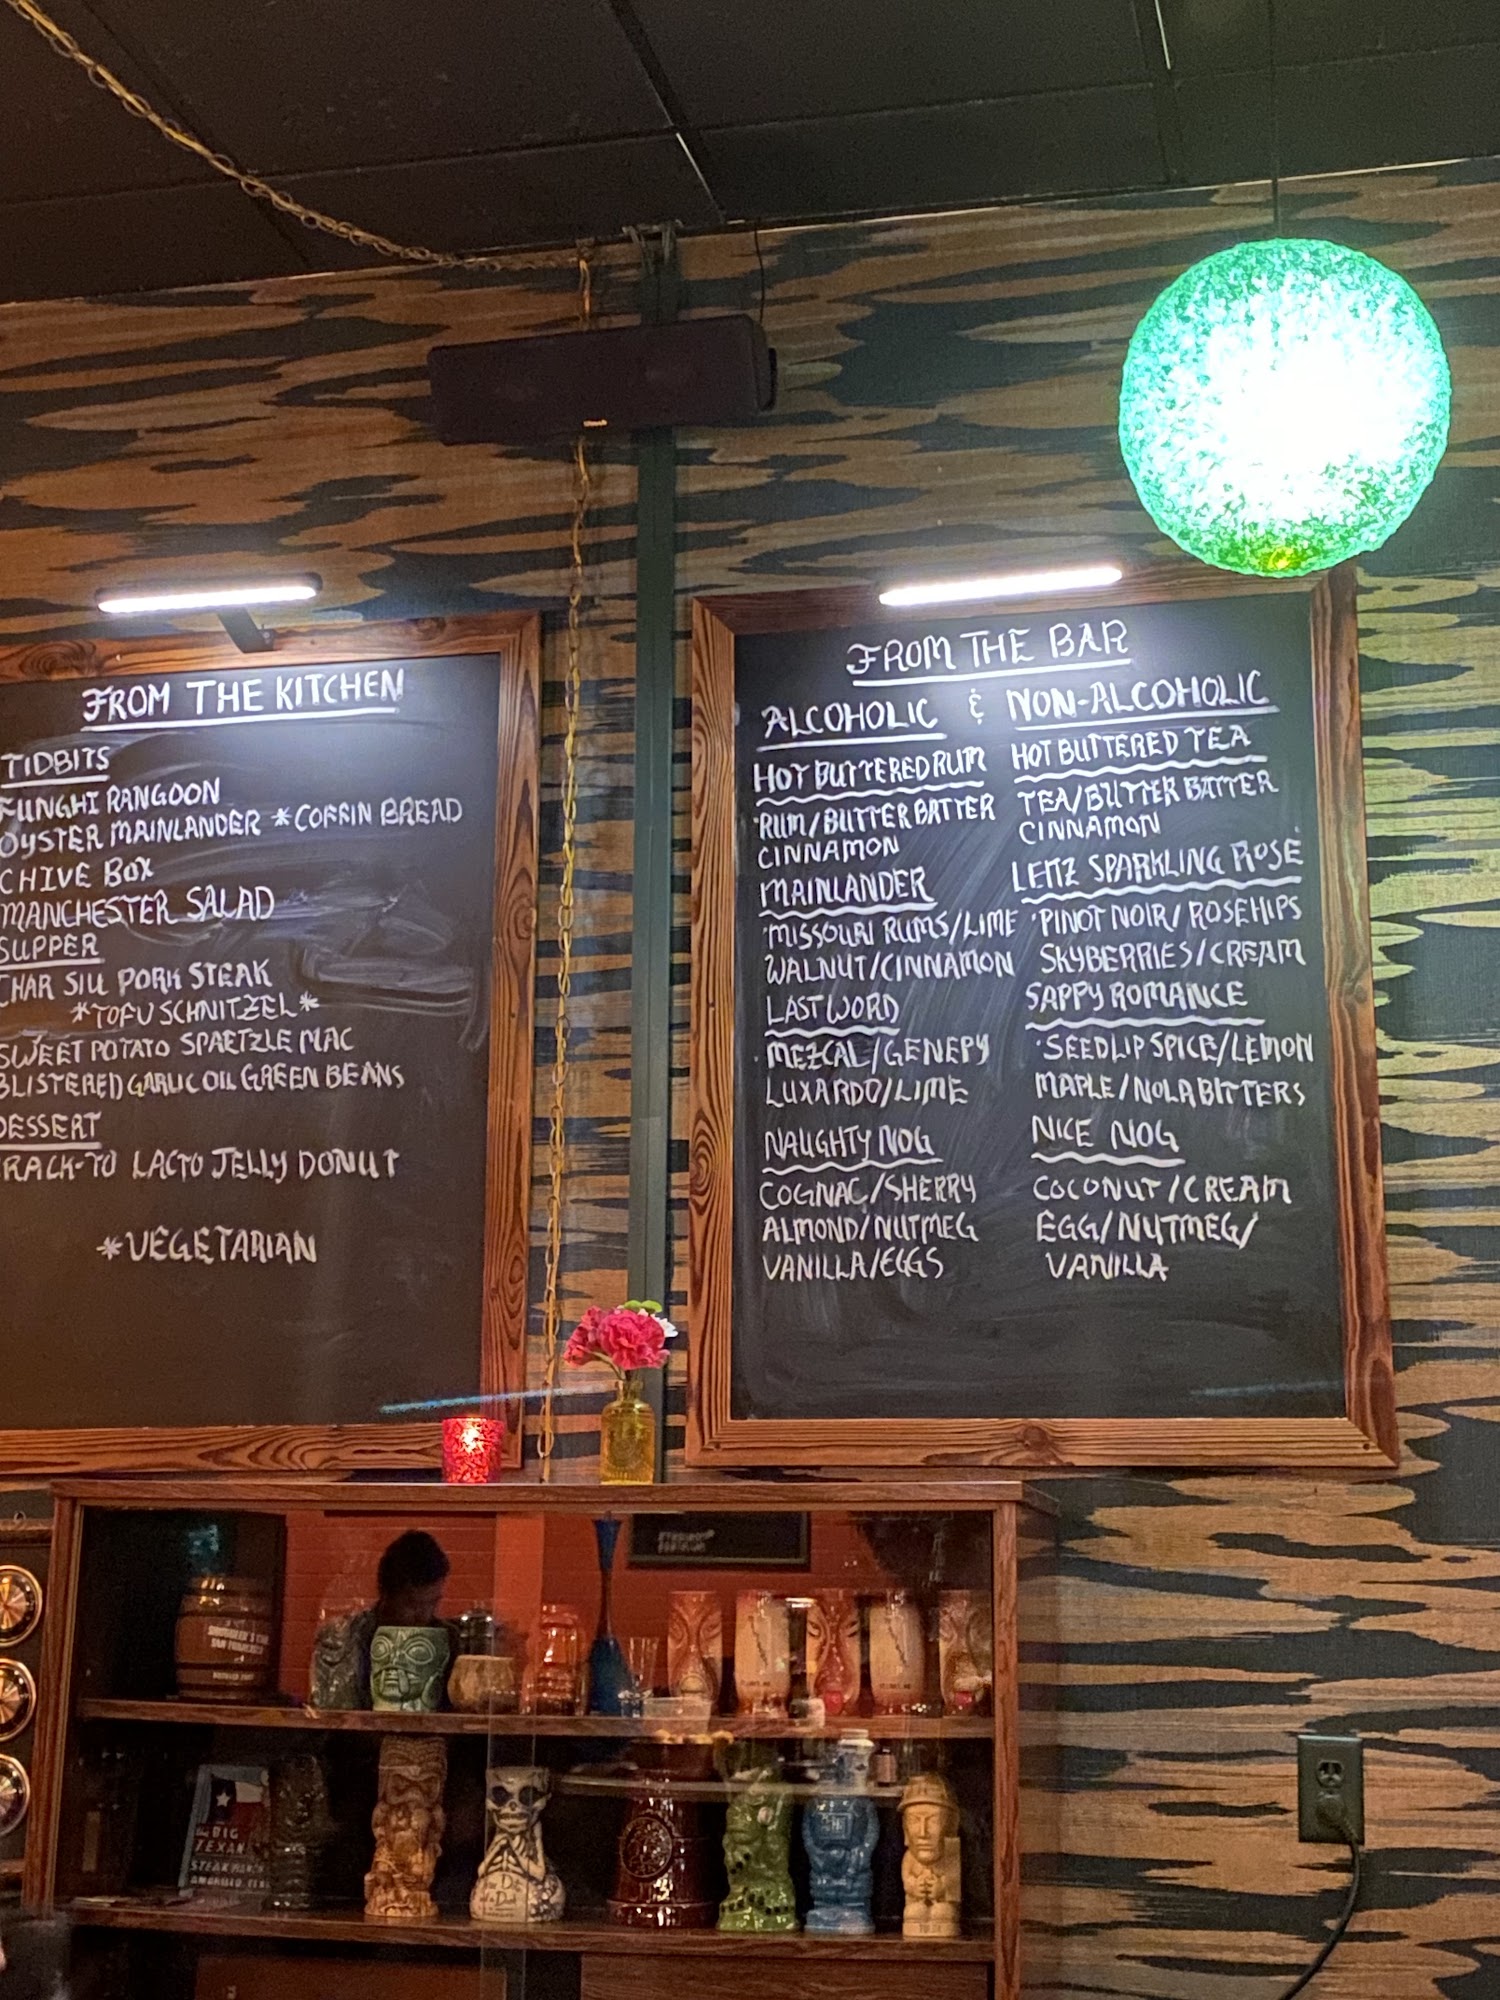 FROM THE KITCHEN
TIDBITS
FUNGHI RANGOON
OYSTER MAINLANDER *COFFIN BREAD
CHIVE BOX
MANCHESTER SALAD
SUPPER
CHAR SIU PORK STEAK
*TOFU SCHNITZEL*
SWEET POTATO SPAETZLE MAC
BLISTERED GARLIC OIL GREEN BEANS
DESSERT
RACK-TO LACTO JELLY DONUT
*VEGETARIAN
FROM THE BAR
ALCOHOLIC & NON-ALCOHOLIC
HOT BUTTERED RUM
·RUM/BUTTER BATTER
CINNAMON
MAINLANDER
·MISSOURI RUMS/LIME
WALNUT/CINNAMON
LAST WORD
·MEZCAL/GENEPY
LUXARDO/LIME
NAUGHTY NOG
COGNAC/SHERRY
ALMOND/NUTMEG
VANILLA/EGGS
HOT BUTTERED TEA
TEA/BUTTER BATTER
CINNAMON
LEITZ SPARKLING ROSÉ
·PINOT NOIR/ROSEHIPS
SKYBERRIES/CREAM
SAPPY ROMANCE
·SEEDLIP SPICE/LEMON
MAPLE/NOLA BITTERS
NICE NOG
COCONUT/CREAM
EGG/NUTMEG/
VANILLA
SAN FRANCISCO
BIG
TEXAN
STEAK RANCH